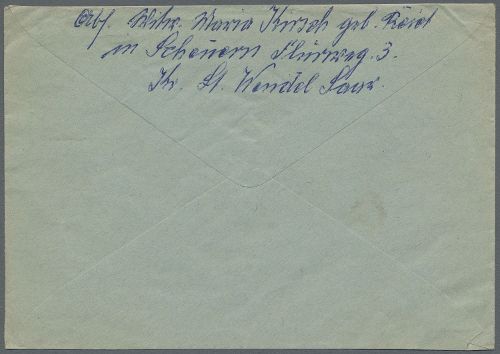 Abs. Witw. Maria Kirsch geb.
in Scheuern Flurweg. 3.
Kr. St. Wendel Saar.